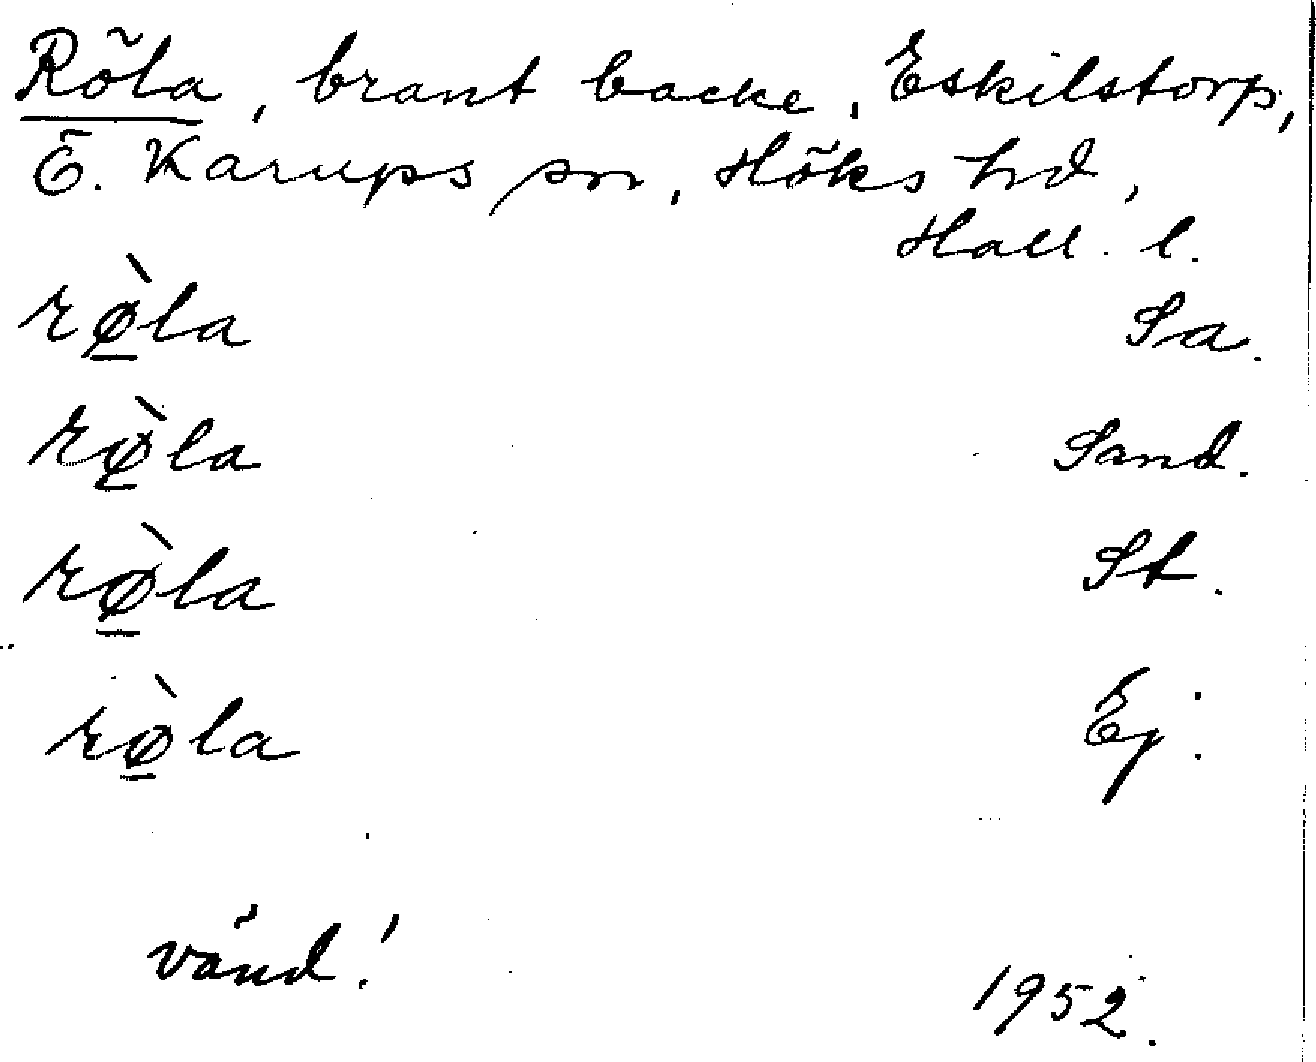 Röla, brant backe, Eskilstorp,
Ö. Karups sn, Höks hd,
Hall. l.
rø̲̀la Sa.
rø̲̀la Sand.
rø̲̀la St.
rø̲̀la Ej:
vänd!
1952.